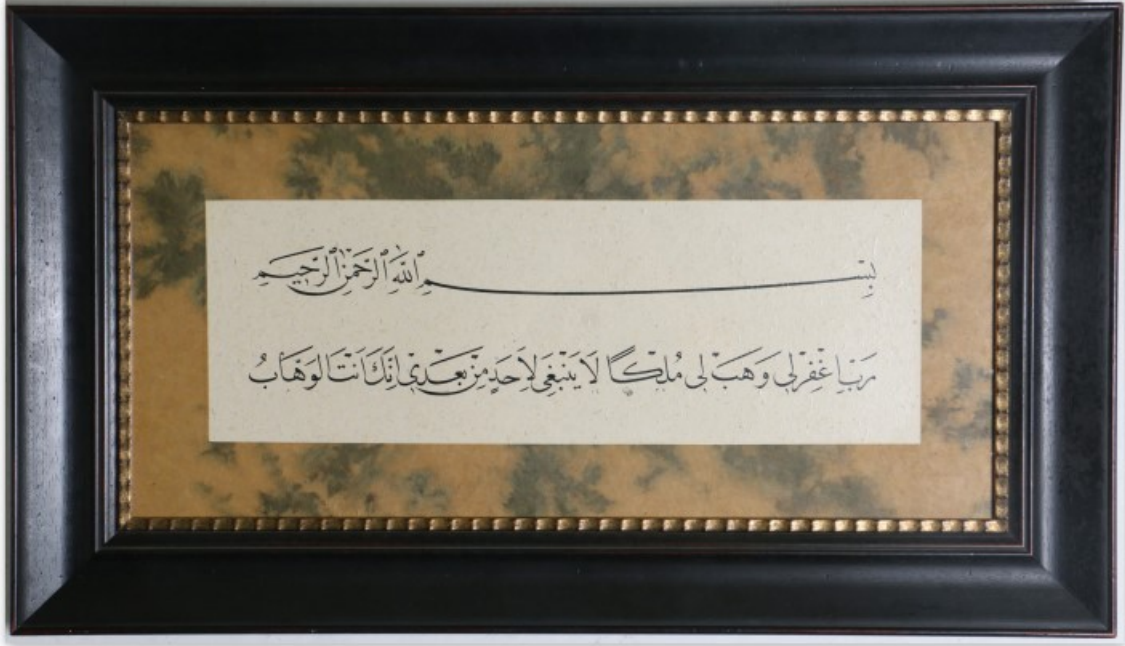 بِسْمِ اللهِ الرَّحْمٰنِ الرَّحِيمِ
رَبِّ اغْفِرْ لِى وَهَبْ لِى مُلْكًا لَا يَنْبَغِى لِاَحَدٍ مِنْ بَعْدِى اِنَّكَ اَنْتَ الْوَهَّابُ